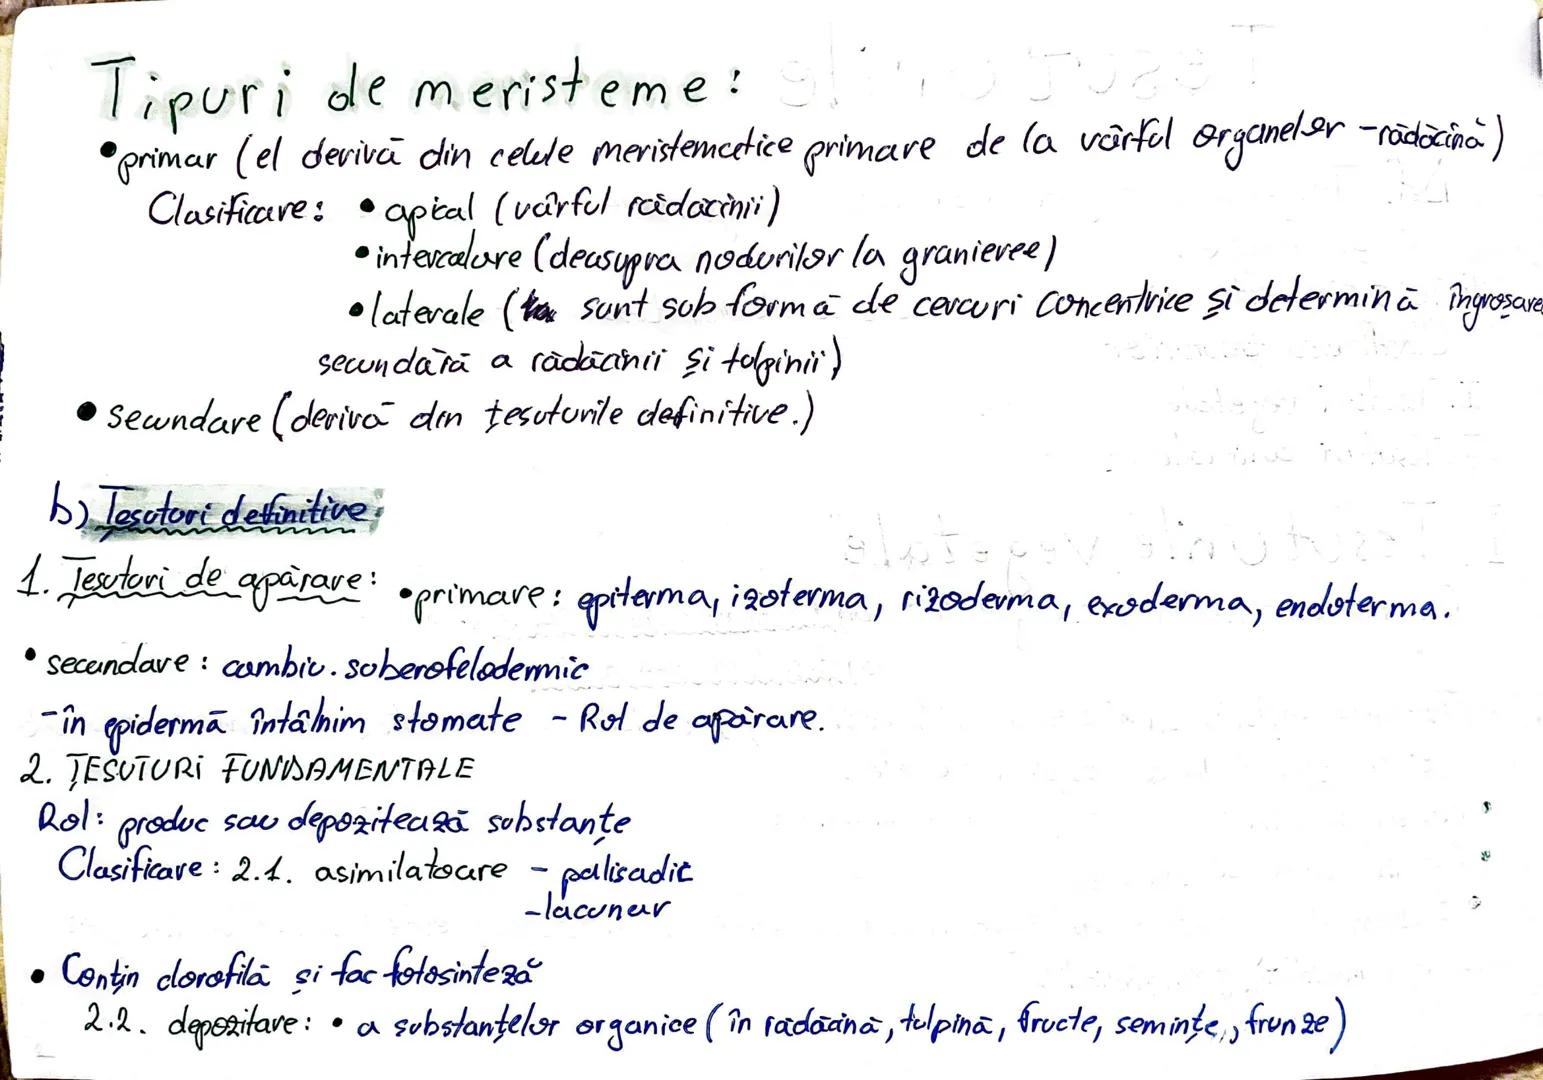 Tipuri de meristeme:
•primar (el derivă din celule meristematice primare de la vârful organelor -rădăcină)
Clasificare: • apical (vârful rădăcinii)
•intercalare (deasupra nodurilor la graminee)
•laterale ( sunt sub formă de cercuri concentrice și determină îngroșarea
secundară a rădăcinii și tulpinii)
• secundare (derivă din țesuturile definitive.)
b) Țesuturi definitive:
1. Țesuturi de apărare: •primare: epiterma, izoterma, rizoderma, exoderma, endoterma.
• secundare: cambiu. suberofelodermic
-în epidermă întâlnim stomate - Rol de apărare.
2. ȚESUTURI FUNDAMENTALE
Rol: produc sau depozitează substanțe
Clasificare: 2.1. asimilatoare - palisadic
-lacunar
• Conțin clorofilă și fac fotosinteză
2.2. depozitare: • a substanțelor organice (în rădăcină, tulpină, fructe, semințe, frunze)